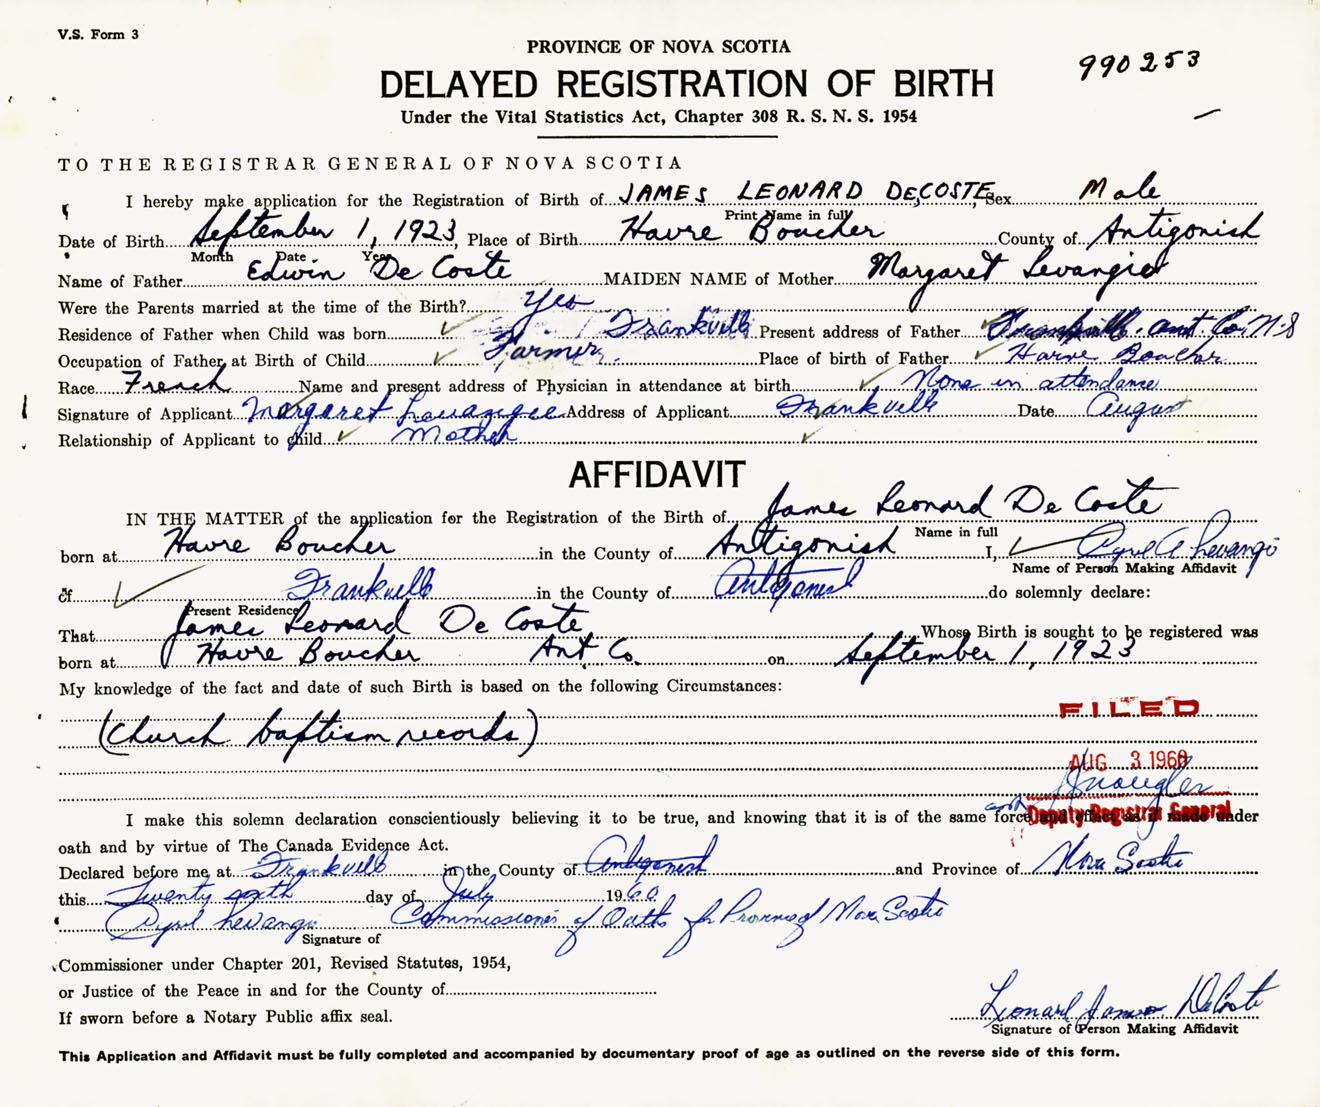 V.S. Form 3
PROVINCE OF NOVA SCOTIA
990253
DELAYED REGISTRATION OF BIRTH
Under the Vital Statistics Act, Chapter 308 R. S. N. S. 1954
TO THE REGISTRAR GENERAL OF NOVA SCOTIA
I hereby make application for the Registration of Birth of JAMES LEONARD DECOSTE, Sex Male
Print Name in full
Date of Birth September 1, 1923, Place of Birth Havre Boucher County of Antigonish
Month Date Year
Name of Father Edwin De Coste MAIDEN NAME of Mother Margaret Levangie
Were the Parents married at the time of the Birth? Yes
Residence of Father when Child was born Frankville Present address of Father Frankville Ant Co. N.S
Occupation of Father at Birth of Child Farmer. Place of birth of Father Harve Boucher
Race French Name and present address of Physician in attendance at birth None in attendance
Signature of Applicant Margaret Address of Applicant Frankville Date August
Relationship of Applicant to child Mother
AFFIDAVIT
IN THE MATTER of the application for the Registration of the Birth of James Leonard De Coste
Name in full
born at Havre Boucher in the County of Antigonish I, Cyril A Levangie
Name of Person Making Affidavit
of Frankville in the County of Antigonish do solemnly declare:
Present Residence
That James Leonard De Coste Whose Birth is sought to be registered was
born at Havre Boucher Ant Co. on September 1, 1923
My knowledge of the fact and date of such Birth is based on the following Circumstances:
FILED
(Church baptism records)
AUG 3 1960
Deputy Registrar General
I make this solemn declaration conscientiously believing it to be true, and knowing that it is of the same force and effect as if made under
oath and by virtue of The Canada Evidence Act.
Declared before me at Frankville in the County of Antigonish and Province of Nova Scotia
this Twenty sixth day of July 1960
Cyril Levangie Commissioner of Oaths for Province of Nova Scotia
Signature of
Commissioner under Chapter 201, Revised Statutes, 1954,
or Justice of the Peace in and for the County of
If sworn before a Notary Public affix seal.
Leonard James DeCoste
Signature of Person Making Affidavit
This Application and Affidavit must be fully completed and accompanied by documentary proof of age as outlined on the reverse side of this form.